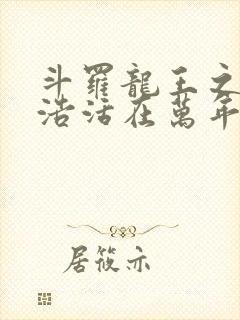 斗羅龍王之
浩活在萬年
居筱亦